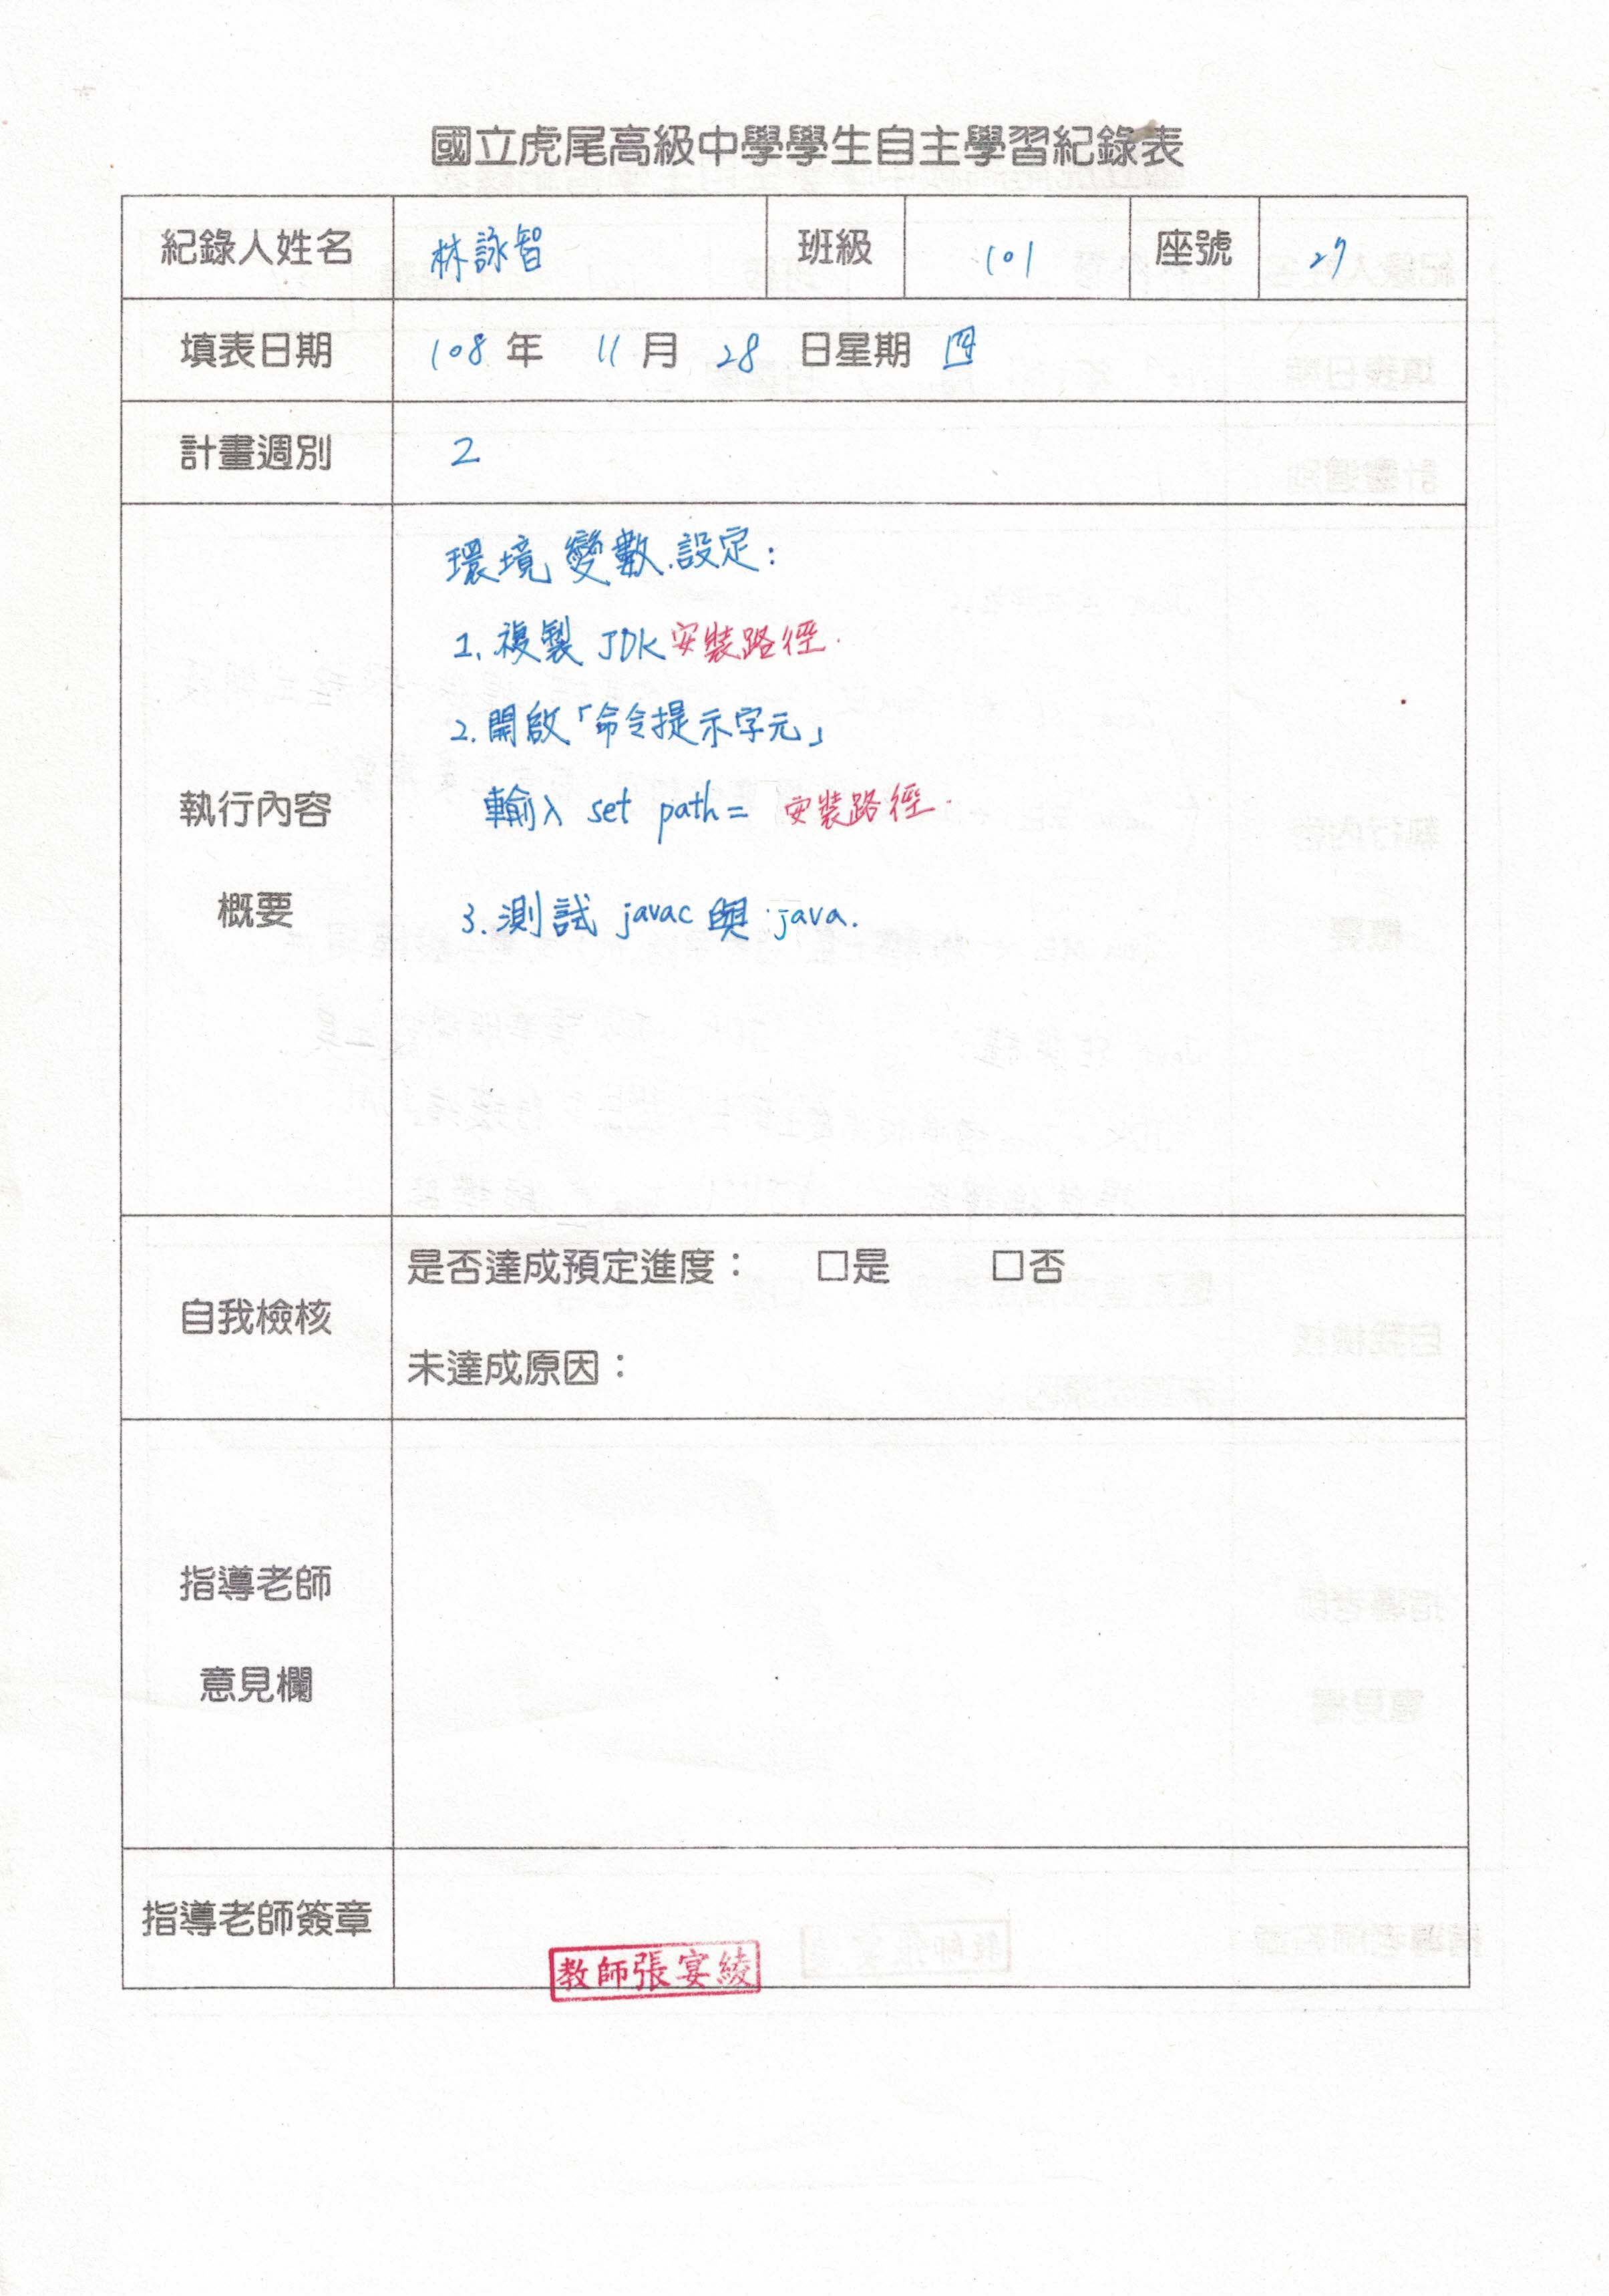 國立虎尾高級中學學生自主學習紀錄表
紀錄人姓名 林詠智 班級 101 座號 27
填表日期 108 年 11 月 28 日星期 四
計畫週別 2
執行內容
概要
環境變數設定:
1. 複製 JDK 安裝路徑.
2. 開啟「命令提示字元」
輸入 set path= 安裝路徑.
3. 測試 javac 與 java.
自我檢核
是否達成預定進度: □是 □否
未達成原因:
指導老師
意見欄
指導老師簽章
教師張宴綾